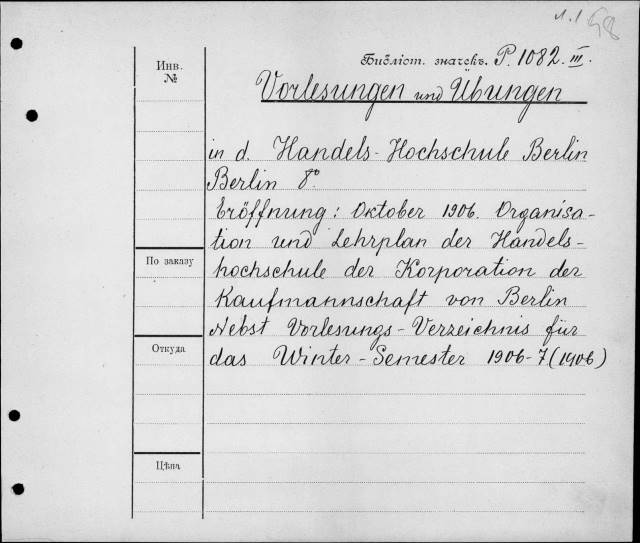 Инв.
№
Библіот. значекъ. P. 1082. III.
Vorlesungen und Übungen
in d. Handels-Hochschule Berlin
Berlin 8°
Eröffnung: Oktober 1906. Organisa-
tion und Lehrplan der Handels-
hochschule der Korporation der
Kaufmannschaft von Berlin
Nebst Vorlesungs-Verzeichnis für
das Winter-Semester 1906-7 (1906)
По заказу
Откуда
Цѣна